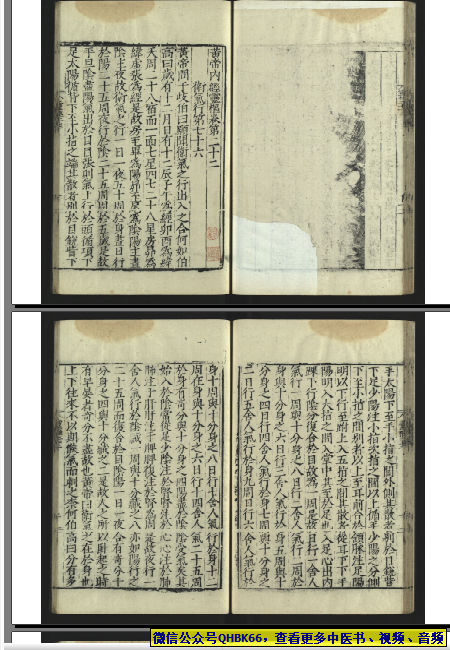 黃帝內經靈樞卷第二十二
衛氣行第七十六
黃帝問于岐伯曰願聞衛氣之行出入之合何如伯
高曰歲有十二月日有十二辰子午為經卯酉為緯
天周二十八宿而一面七星四七二十八星房昴為
緯虛張為經是故房至畢為陽昴至心為陰陽主晝
陰主夜故衛氣之行一日一夜五十周於身晝日行
於陽二十五周夜行於陰二十五周周於五歲是故
平旦陰盡陽氣出於目目張則氣上行於頭循項下
足太陽循背下至小指之端其散者別於目銳眥下
手太陽下至手小指之間外側其散者別於目銳眥
下足少陽注小指次指之間以上循手少陽之分側
下至小指之間別者以上至耳前合於頷脈注足陽
明以下行至跗上入五指之間其散者從耳下下手
陽明入大指之間入掌中其至於足也入足心出內
踝下行陰分復合於目故為一周是故日行一舍人
氣行一周與十分身之八日行二舍人氣行二周於
身與十分身之六日行三舍人氣行於身五周與十
分身之四日行四舍人氣行於身七周與十分身之
二日行五舍人氣行於身九周日行六舍人氣行於
身十周與十分身之八日行七舍人氣行於身十二
周在身與十分身之六日行十四舍人氣二十五周
於身有奇分與十分身之四陽盡於陰陰受氣矣其
始入於陰常從足少陰注於腎腎注於心心注於肺
肺注于肝肝注于脾脾復注於腎為周是故夜行一
舍人氣行於陰藏一周與十分藏之八亦如陽行之
二十五周而復合於目陰陽一日一夜合有奇分十
分身之四與十分藏之二是故人之所以臥起之時
有早晏者奇分不盡故也黃帝曰衛氣之在於身也
上下往來不以期候氣而刺之奈何伯高曰分有多
微信公众号QHBK66，查看更多中医书、视频、音频